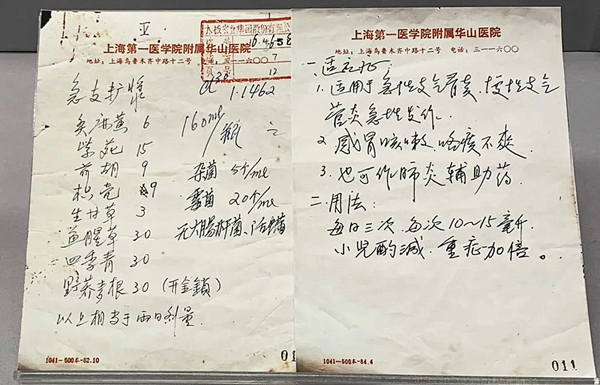 上海第一医学院附属华山医院
地址：上海乌鲁木齐中路十二号 电话：三一一六〇〇
急支扩
1.1462
炙麻黄 6 160ml/瓶
紫菀 15
前胡 9 杂菌 5个/ml
枳壳 9 霉菌 20个/ml
生甘草 3 无大肠杆菌、活螨
鱼腥草 30
四季青 30
野荞麦根 30 (开金锁)
以上相当于两日剂量
1041-500本-82.10
011
上海第一医学院附属华山医院
地址：上海乌鲁木齐中路十二号 电话：三一一六〇〇
一.适应证：
1.适用于急性支气管炎、慢性支气
管炎急性发作.
2.感冒咳嗽咯痰不爽
3.也可作肺炎辅助药.
二.用法：
每日三次 每次10~15毫升
小儿酌减、重症加倍。
1041-500本-84.4
011